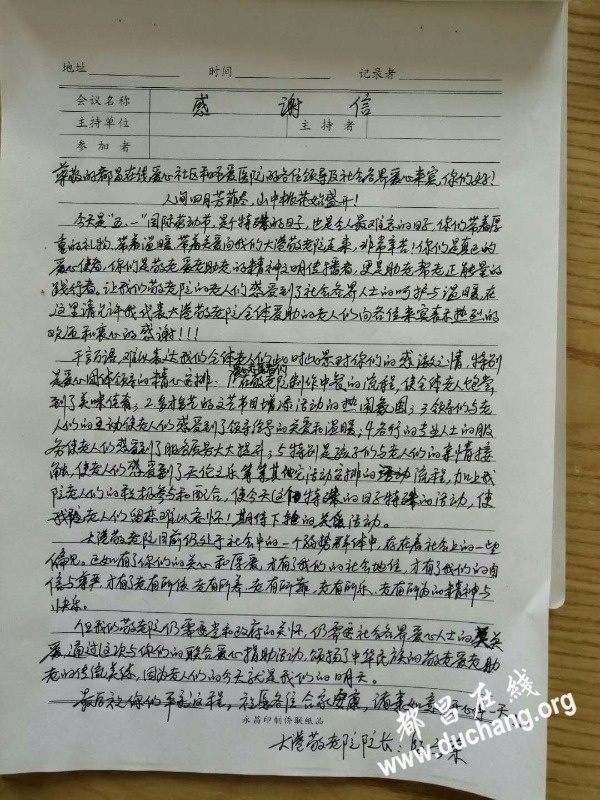 地址 时间 记录者
会议名称 感谢信
主持单位 主持者
参加者
尊敬的都昌在线爱心社区和 爱医院的各位领导及社会各界爱心来宾,你们好!
人间四月芳菲尽,山中桃花始盛开!
今天是“五.一”国际劳动节,是个特殊的日子,也是令人最难忘的日子,你们带着厚
重的礼物,带着温暖,带着关爱向我们大港敬老院走来,非常辛苦!你们是真正的
爱心使者,你们是敬老爱老助老的精神文明传播者,更是助老帮老正能量的
践行者。让我们敬老院的老人们感受到了社会各界人士的呵护与温暖,在
这里请允许我代表大港敬老院全体受助的老人们向各位来宾表示热烈的
欢迎和衷心的感谢!!!
千言万语,难以表达我们全体老人们此时此景对你们的感激之情,特别
是爱心团体领导的精心安排: 敬老院制作中餐的流程,使全体老人饱尝
到了美味佳肴;2.多才多艺的文艺节目增添活动的热闹氛围;3.领导们与老
人们的互动使老人们感受到了领导们的关爱和温暖;4.各行的专业人士的服
务使老人们感受到了服务质量大大提升;5.特别是孩子们与老人们的亲情接
触,使老人们感受到了天伦之乐等等其他活动安排的流程,加上我
院老人们的积极参与和配合,使今天这个特殊的日子特殊的活动,使
我院老人们留恋难以忘怀!期待下 的关爱活动。
大港敬老院目前仍处于社会中的一个弱势群体中,存在着社会上的一些
偏见。正如有了你们的关心和厚爱,才有了我们的社会地位,才有了我们的自
信与尊严,才有了老有所依、老有所养、老有所靠、老有所乐、老有所为的精神与
快乐。
但我们敬老院仍需要党和政府的关怀,仍需要社会各界爱心人士的关
爱,通过这次与你们的联合爱心捐助活动,颂扬了中华民族的敬老爱老助
老的传统美德,因为老人们的今天就是我们的明天。
最后祝你们平安返程,祝愿各位合家安康,诸事如意 开心每一天
永昌印制侨联纸品
大港敬老院院长:
都昌在线
www.duchang.org